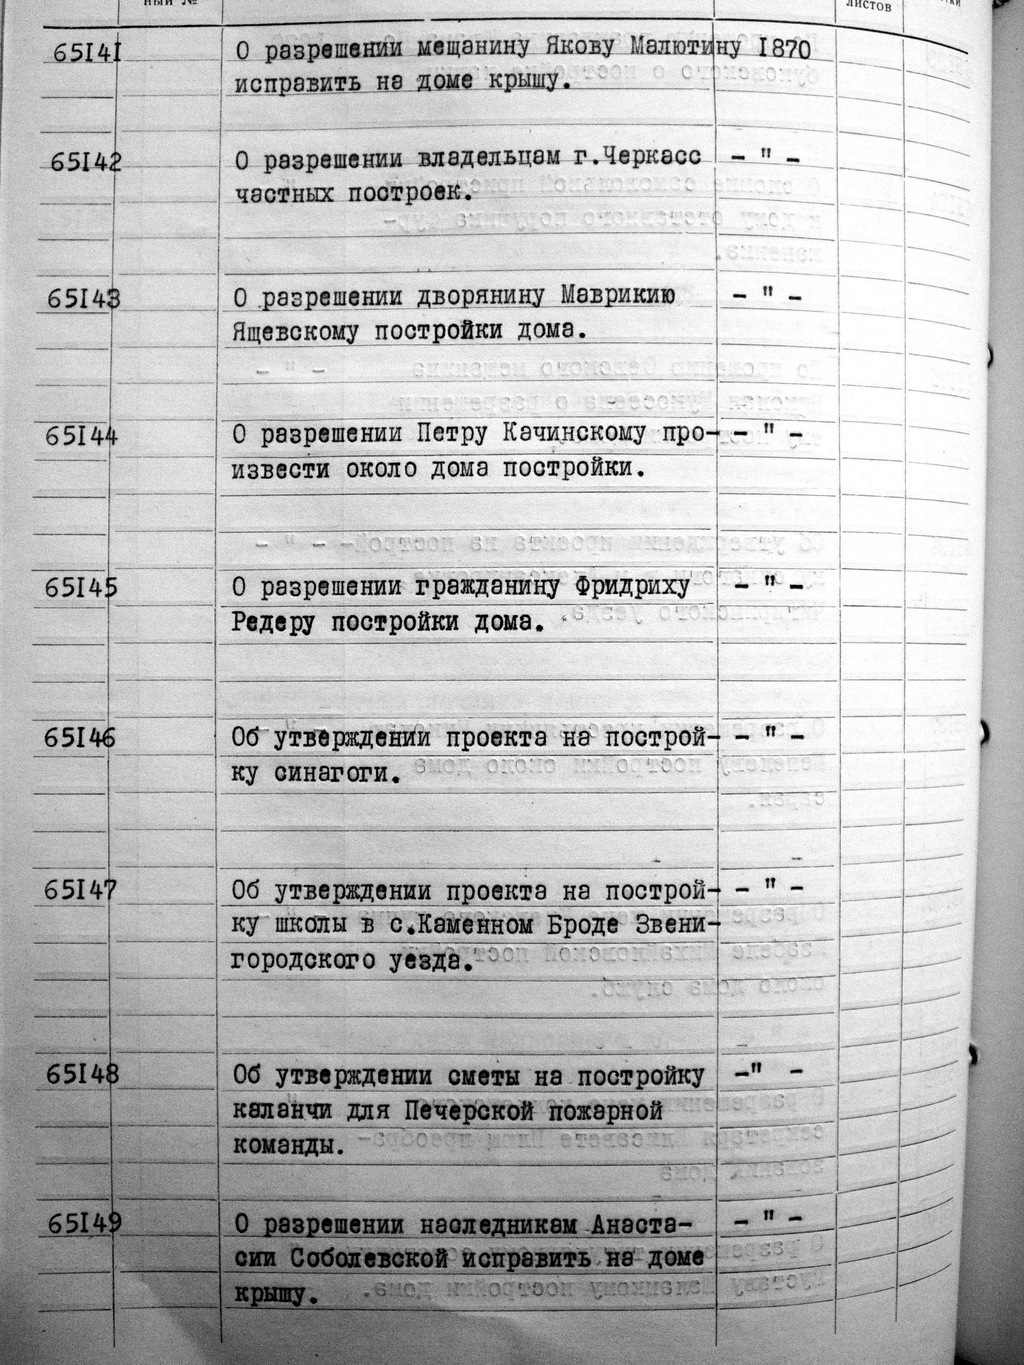 ный №
листов
65I4I О разрешении мещанину Якову Малютину I870
исправить на доме крышу.
65I42 О разрешении владельцам г.Черкасс - " -
частных построек.
65I43 О разрешении дворянину Маврикию - " -
Ящевскому постройки дома.
65I44 О разрешении Петру Качинскому про- - " -
извести около дома постройки.
65I45 О разрешении гражданину Фридриху - " -
Редеру постройки дома.
65I46 Об утверждении проекта на построй- - " -
ку синагоги.
65I47 Об утверждении проекта на построй- - " -
ку школы в с.Каменном Броде Звени-
городского уезда.
65I48 Об утверждении сметы на постройку -" -
каланчи для Печерской пожарной
команды.
65I49 О разрешении наследникам Анаста- - " -
сии Соболевской исправить на доме
крышу.